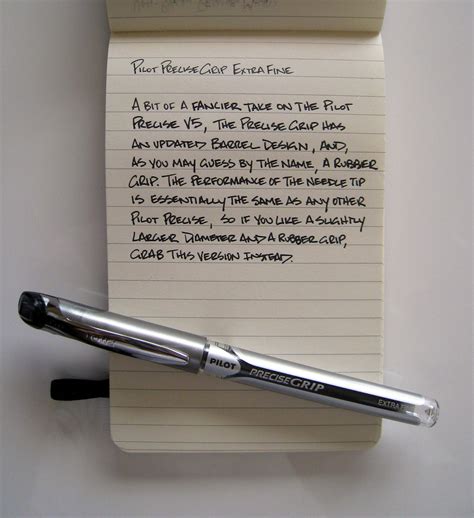 PILOT PRECISE GRIP EXTRA FINE
A BIT OF A FANCIER TAKE ON THE PILOT
PRECISE V5, THE PRECISE GRIP HAS
AN UPDATED BARREL DESIGN, AND,
AS YOU MAY GUESS BY THE NAME, A RUBBER
GRIP. THE PERFORMANCE OF THE NEEDLE TIP
IS ESSENTIALLY THE SAME AS ANY OTHER
PILOT PRECISE, SO IF YOU LIKE A SLIGHTLY
LARGER DIAMETER AND A RUBBER GRIP,
GRAB THIS VERSION INSTEAD.
PILOT PRECISEGRIP EXTRA